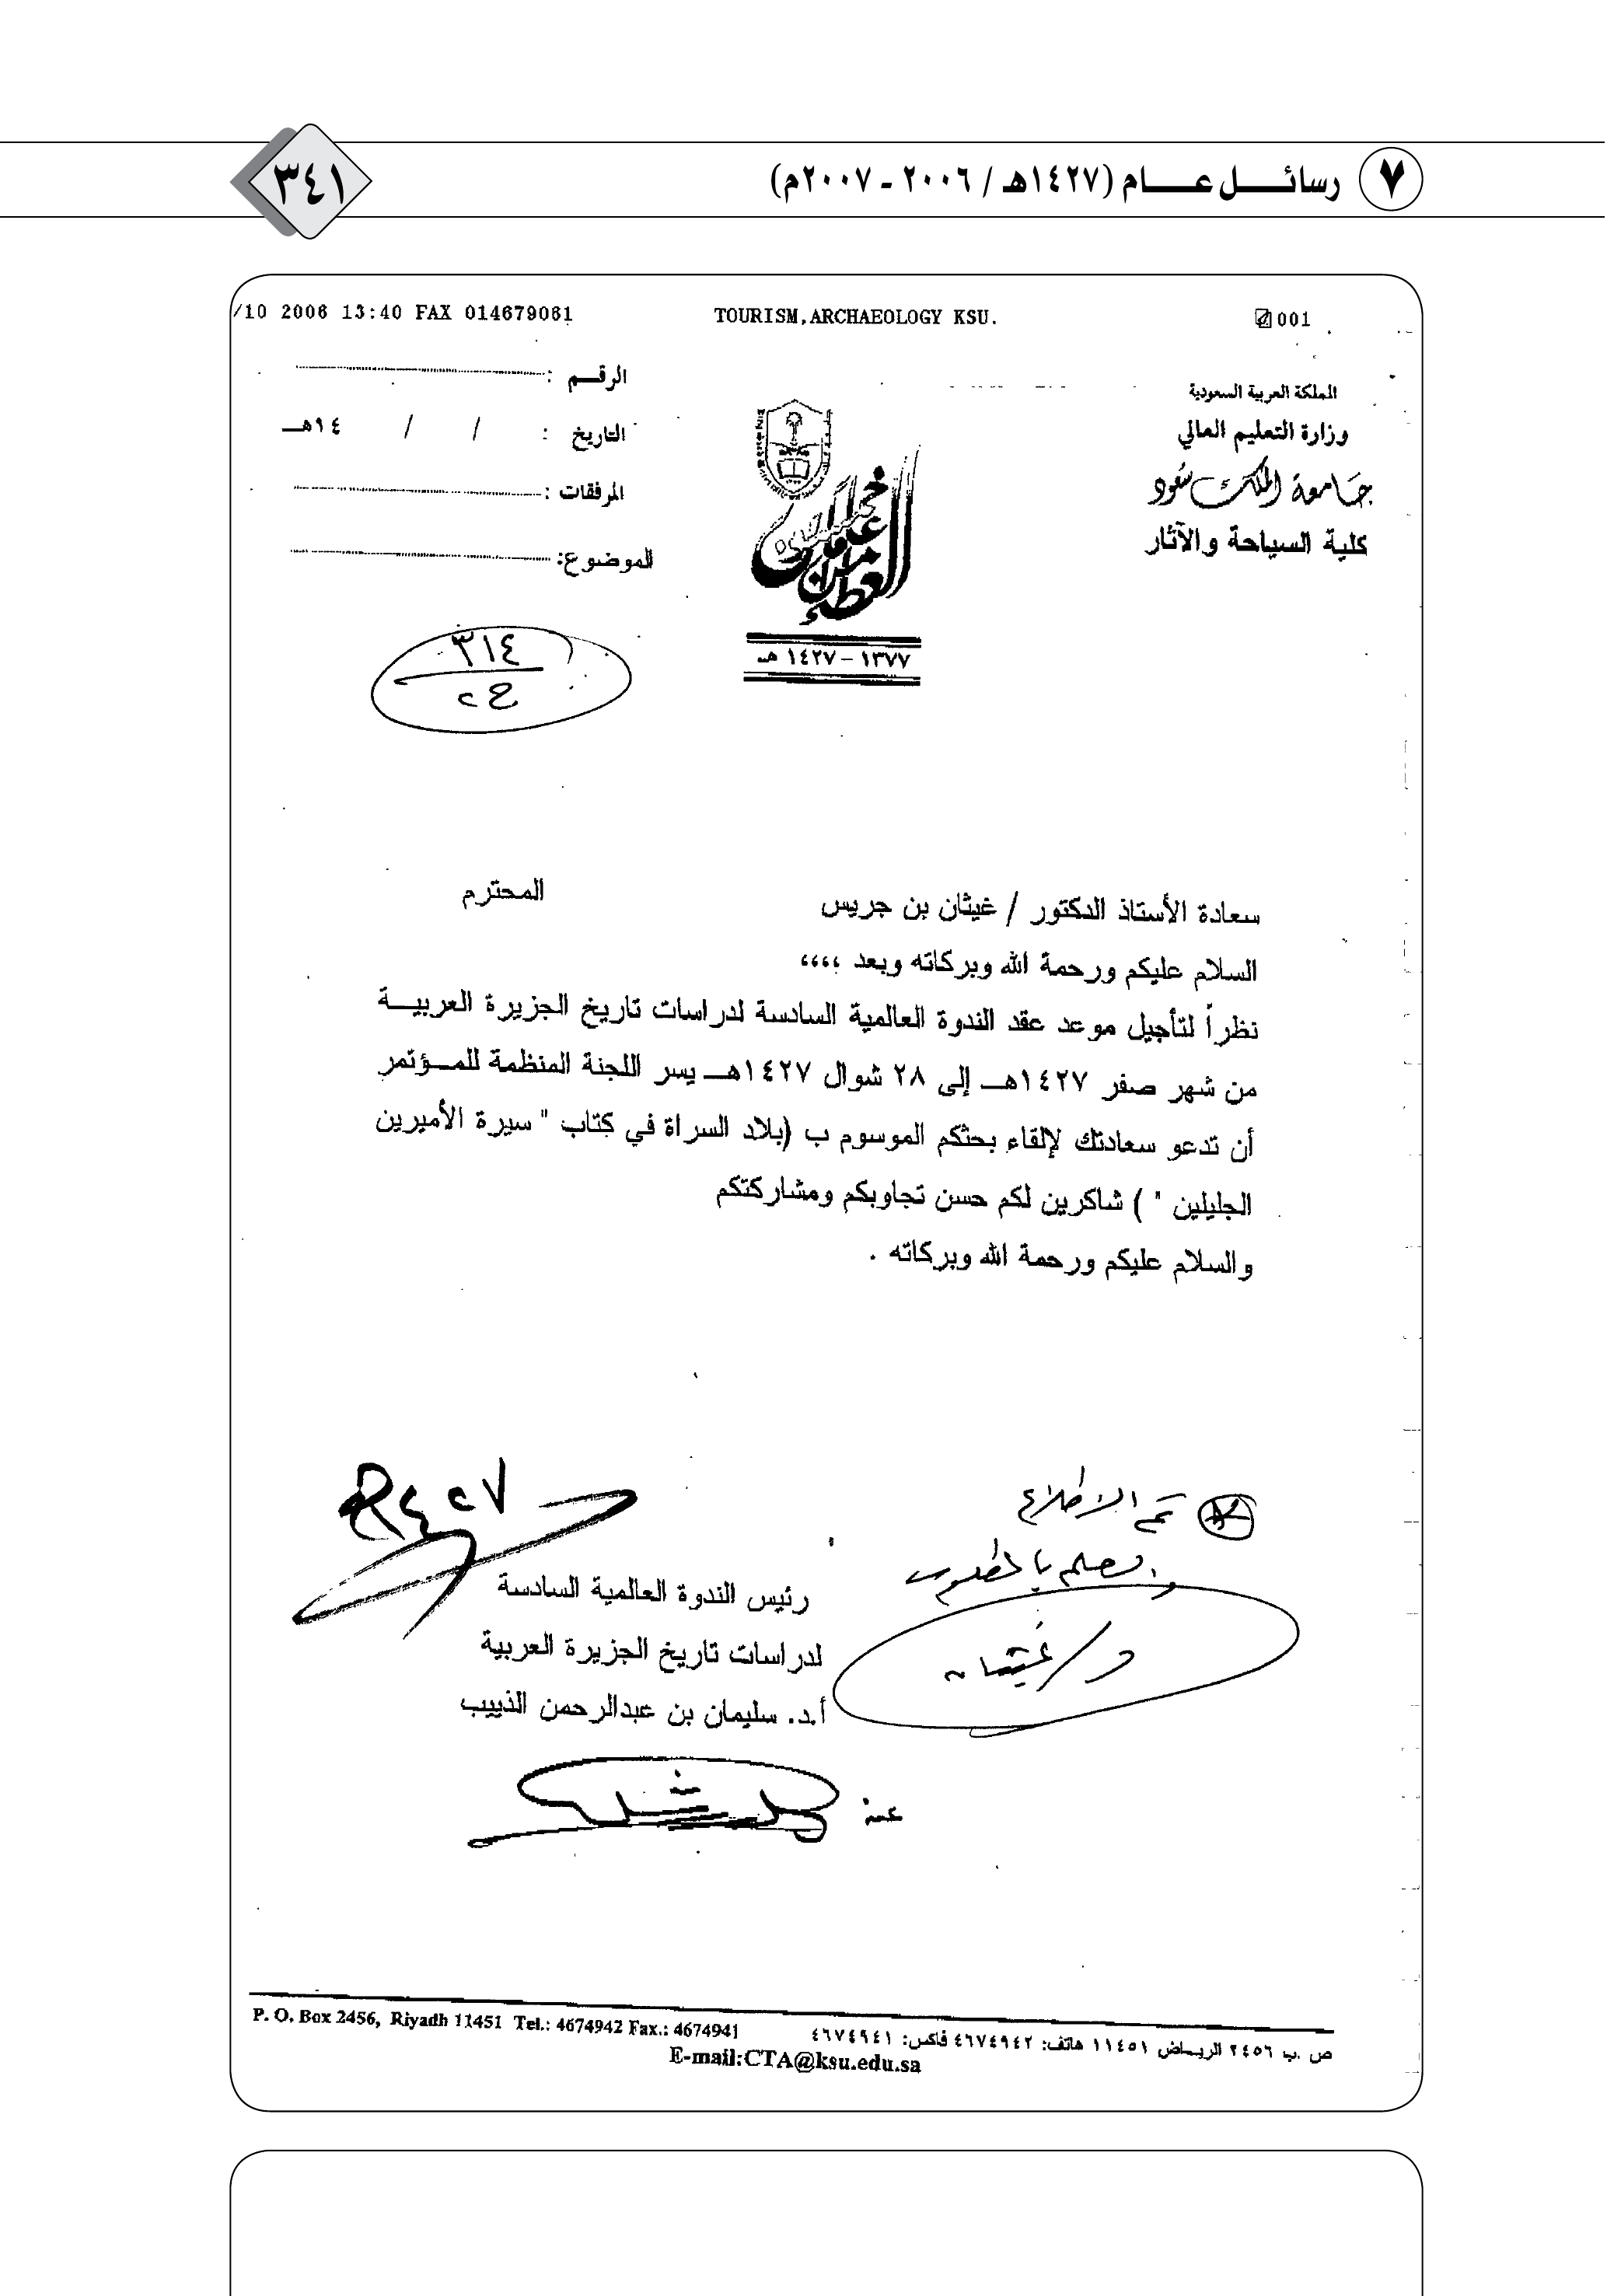 ٧ رسائــــل عــــــام (١٤٢٧هـ / ٢٠٠٦ - ٢٠٠٧م)
٣٤١
/10 2006 13:40 FAX 014679061 TOURISM,ARCHAEOLOGY KSU. 001
المملكة العربية السعودية
وزارة التعليم العالي
جامعة الملك سعود
كلية السياحة والآثار
الرقـــم :
التاريخ : / / ١٤هــ
المرفقات :
الموضوع:
١٣٧٧ – ١٤٢٧ هـ
٣١٤
سعادة الأستاذ الدكتور / غيثان بن جريس المحترم
السلام عليكم ورحمة الله وبركاته وبعد ،،،،
نظراً لتأجيل موعد عقد الندوة العالمية السادسة لدراسات تاريخ الجزيرة العربيـــة
من شهر صفر ١٤٢٧هــ إلى ٢٨ شوال ١٤٢٧هــ يسر اللجنة المنظمة للمــؤتمر
أن تدعو سعادتك لإلقاء بحثكم الموسوم ب (بلاد السراة في كتاب " سيرة الأميرين
الجليلين " ) شاكرين لكم حسن تجاوبكم ومشاركتكم
والسلام عليكم ورحمة الله وبركاته .
تم الاطلاع
والعلم بالمطلوب
د/ غيثان
رئيس الندوة العالمية السادسة
لدراسات تاريخ الجزيرة العربية
أ.د. سليمان بن عبدالرحمن الذييب
عنه
ص .ب ٢٤٥٦ الريـاض ١١٤٥١ هاتف: ٤٦٧٤٩٤٢ فاكس: ٤٦٧٤٩٤١
P. O. Box 2456, Riyadh 11451 Tel.: 4674942 Fax.: 4674941
E-mail:CTA@ksu.edu.sa